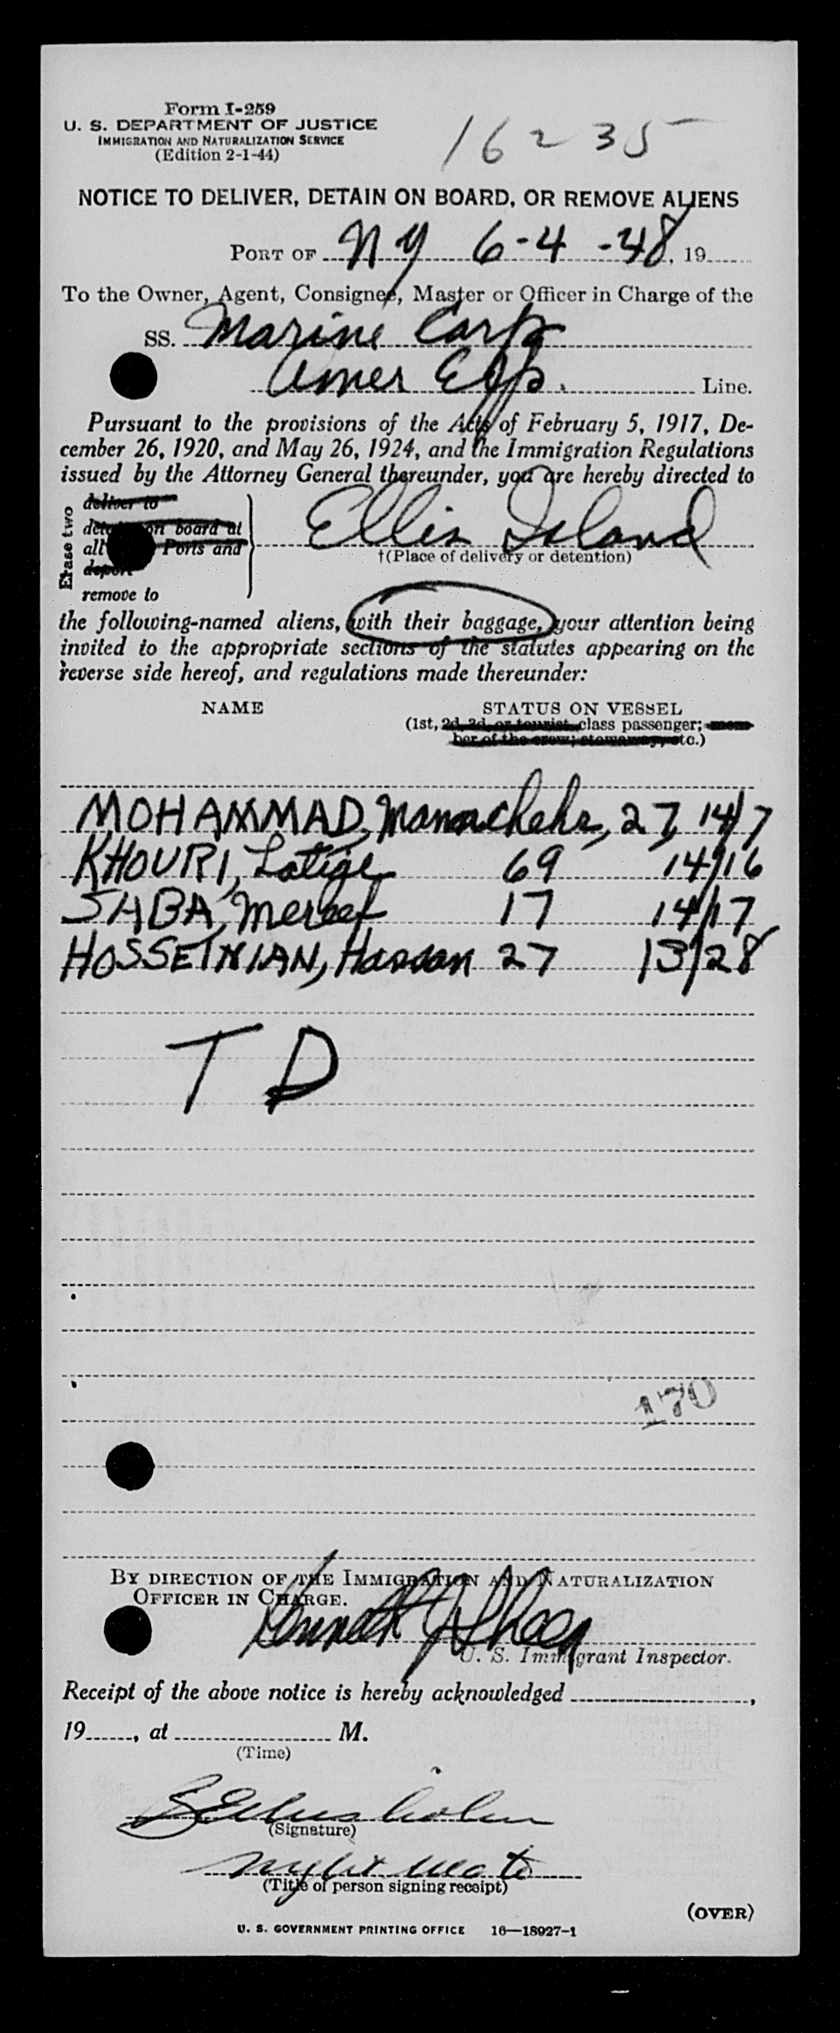 Form I-259
U. S. DEPARTMENT OF JUSTICE
IMMIGRATION AND NATURALIZATION SERVICE
(Edition 2-1-44)
16235
NOTICE TO DELIVER, DETAIN ON BOARD, OR REMOVE ALIENS
PORT OF NY 6-4-48, 19
To the Owner, Agent, Consignee, Master or Officer in Charge of the
SS. Marine Carp
Amer Exp. Line.
Pursuant to the provisions of the Acts of February 5, 1917, De-
cember 26, 1920, and May 26, 1924, and the Immigration Regulations
issued by the Attorney General thereunder, you are hereby directed to
Erase two
deliver to
on board at
all Ports and
remove to
Ellis Island
†(Place of delivery or detention)
the following-named aliens, with their baggage, your attention being
invited to the appropriate sections of the statutes appearing on the
reverse side hereof, and regulations made thereunder:
NAME STATUS ON VESSEL
(1st, 2d, 3d, or tourist class passenger; mem-
ber of the crew; stowaway, etc.)
MOHAMMAD, Manouchehr, 27, 14/7
KHOURI, Latife 69 14/16
SABA, 17 14/17
HOSSEINIAN, Hassan 27 13/28
T D
170
BY DIRECTION OF THE IMMIGRATION AND NATURALIZATION
OFFICER IN CHARGE.
Kenneth
U. S. Immigrant Inspector.
Receipt of the above notice is hereby acknowledged ,
19 , at M.
(Time)
(Signature)
Night Mate
(Title of person signing receipt)
(OVER)
U. S. GOVERNMENT PRINTING OFFICE 16—18927-1